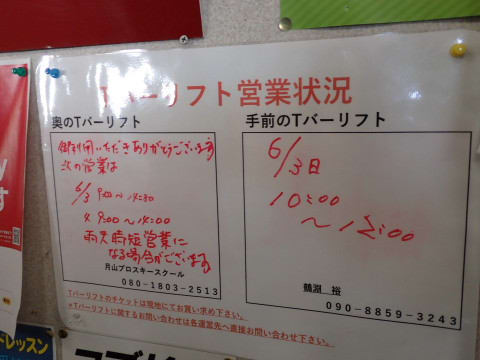 Tバーリフト営業状況
奥のTバーリフト
御利用いただきありがとうございます
次の営業は
6/3 9:00〜14:30
4 9:00〜14:00
雨天時短営業に
なる場合がございます
月山プロスキースクール
080-1803-2513
手前のTバーリフト
6/3日
10:00
〜12:00
鶴淵 裕
090-8859-3243
Tバーリフトのチケットは現地にてお買い求め下さい。
*Tバーリフトに関するお問い合わせは各運営先へ直接お問い合わせ下さい。
トレッスン
す